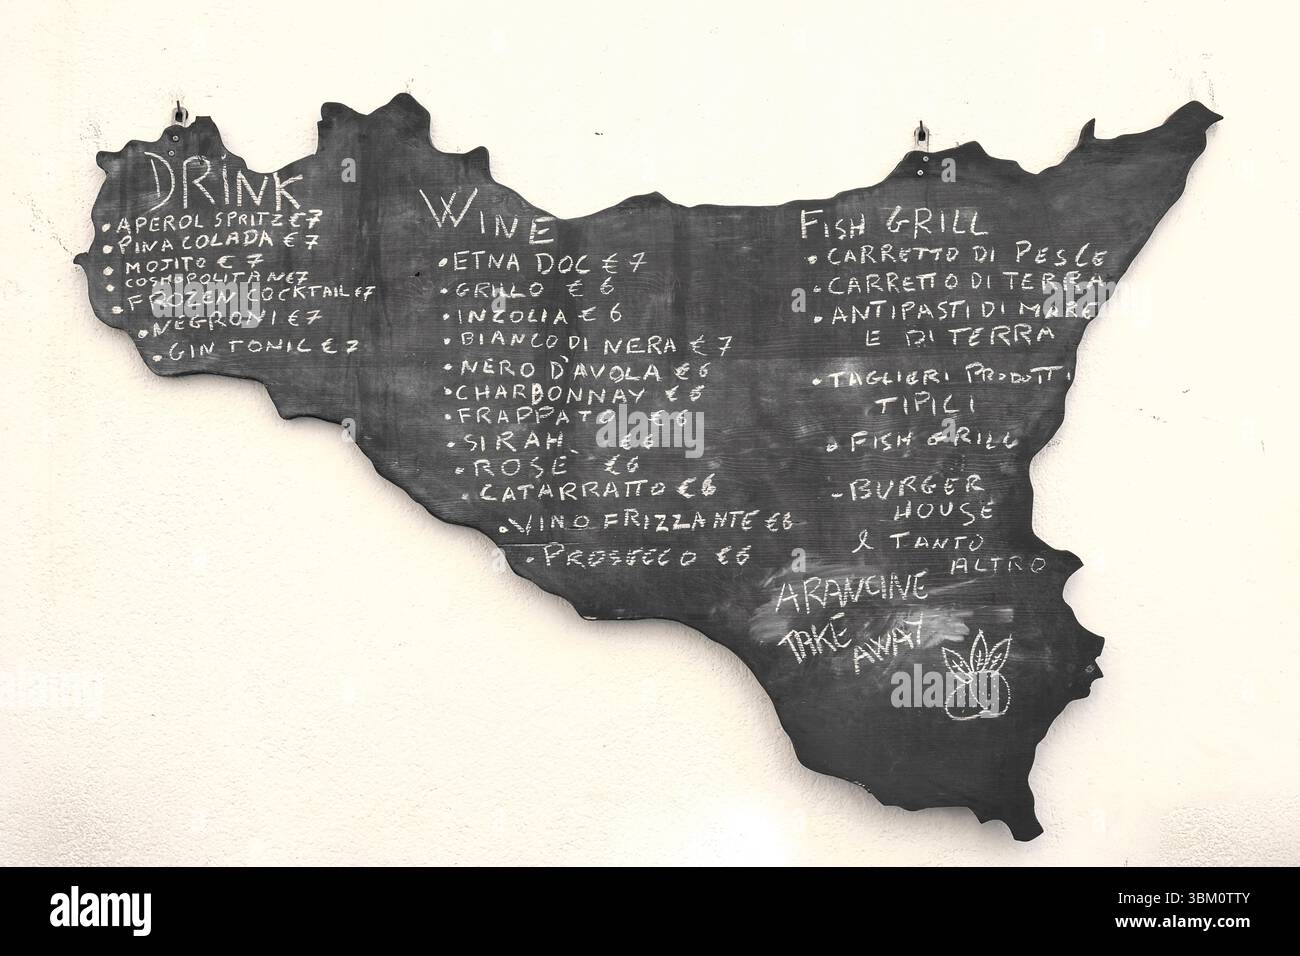 DRINK
• APEROL SPRITZ € 7
• PINA COLADA € 7
• MOJITO € 7
• COSMOPOLITAN €7
• FROZEN COCKTAIL €7
• NEGRONI € 7
• GIN TONIC € 7
WINE
• ETNA DOC € 7
• GRILLO € 6
• INZOLIA € 6
• BIANCO DI NERA € 7
• NERO D'AVOLA € 6
• CHARDONNAY € 6
• FRAPPATO € 6
• SIRAH €6
• ROSÈ €6
• CATARRATTO € 6
• VINO FRIZZANTE €6
• PROSECCO € 6
FISH GRILL
• CARRETTO DI PESCE
• CARRETTO DI TERRA
• ANTIPASTI DI MARE
E DI TERRA
• TAGLIERI PRODOTTI
TIPICI
• FISH GRILL
- BURGER
HOUSE
& TANTO
ALTRO
ARANCINE
TAKE
AWAY
alamy
Image ID: 3BM0TTY
www.alamy.com